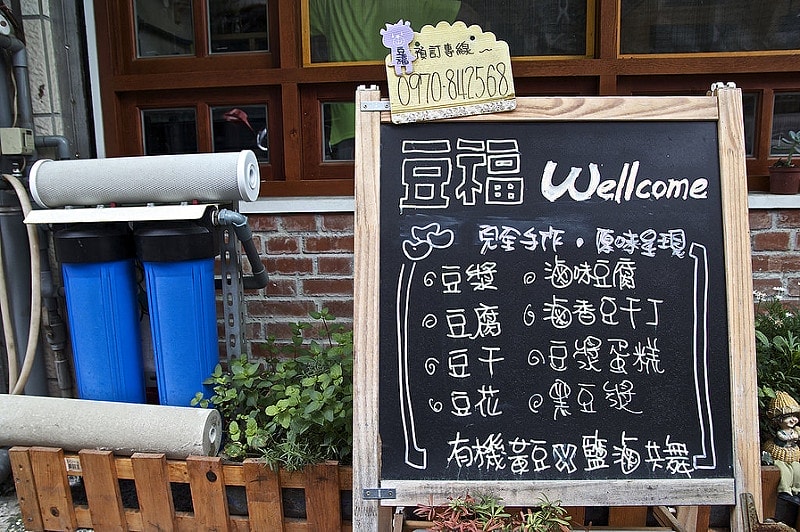 豆福
預訂專線~
0970-842568
豆福 Wellcome
完全手作·原味呈現
豆漿
滷味豆腐
豆腐
滷香豆干丁
豆干
豆漿蛋糕
豆花
黑豆漿
有機黃豆×鹽滷共舞